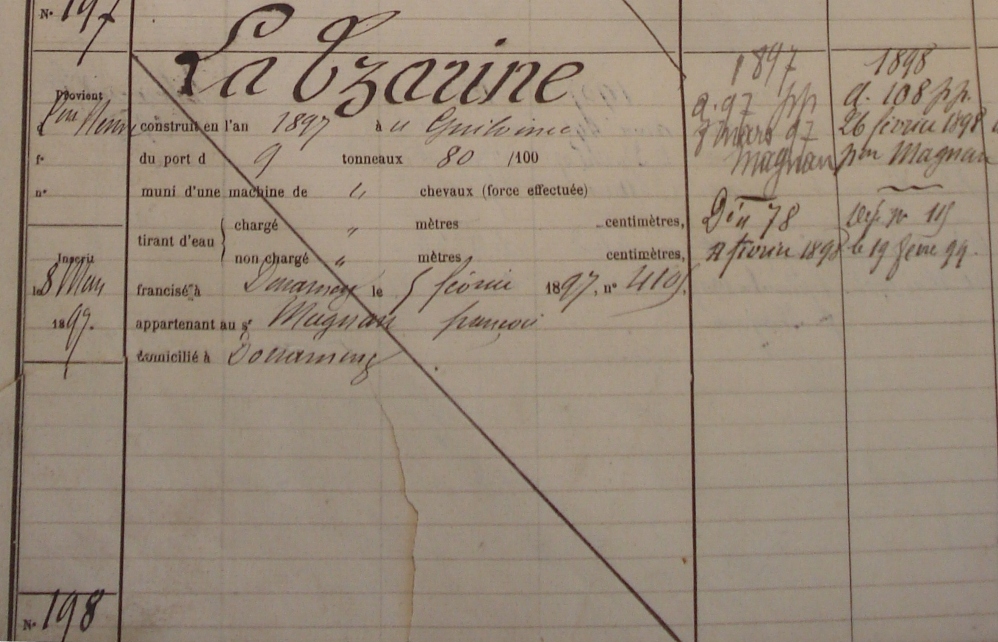 N° 197
La Tzarine
Provient
construit en l'an 1897 à
f° du port d 9 tonneaux 80 /100
n° muni d'une machine de " chevaux (force effectuée)
tirant d'eau { chargé " mètres centimètres,
non chargé " mètres centimètres,
Inscrit
le 8 Mars
1897.
francisé à Douarnenez le 5 février 1897, n° 
appartenant au sr Magnan françois
domicilié à Douarnenez
N° 198
1897
d. 97 pp
9 mars 97
Magnan
Dén 78
février 1898
1898
d. 108 pp.
26 février 1898
pon Magnan
le 19